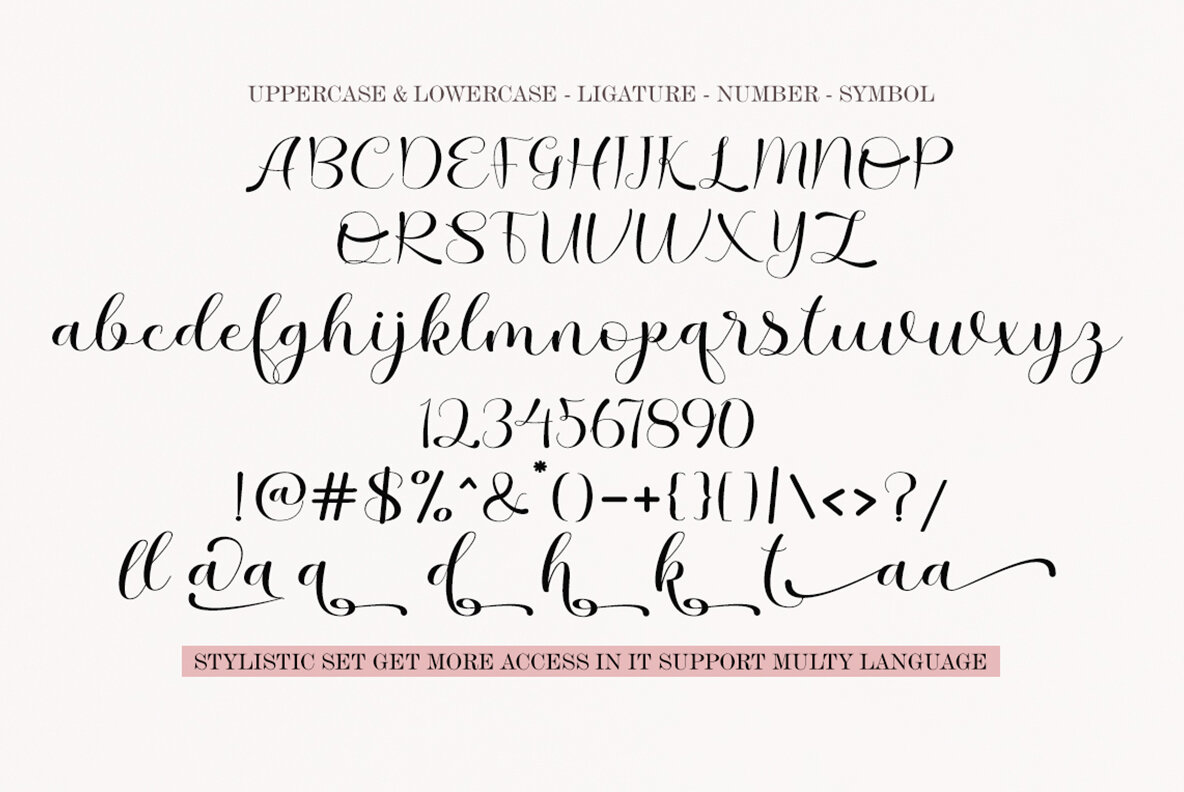 UPPERCASE & LOWERCASE - LIGATURE - NUMBER - SYMBOL
ABCDEFGHIJKLMNOP
QRSTUVWXYZ
abcdefghijklmnopqrstuvwxyz
1234567890
!@#$%^&*()-+{}[]|\<>?/
ll @a a q d h k t a a
STYLISTIC SET GET MORE ACCESS IN IT SUPPORT MULTY LANGUAGE